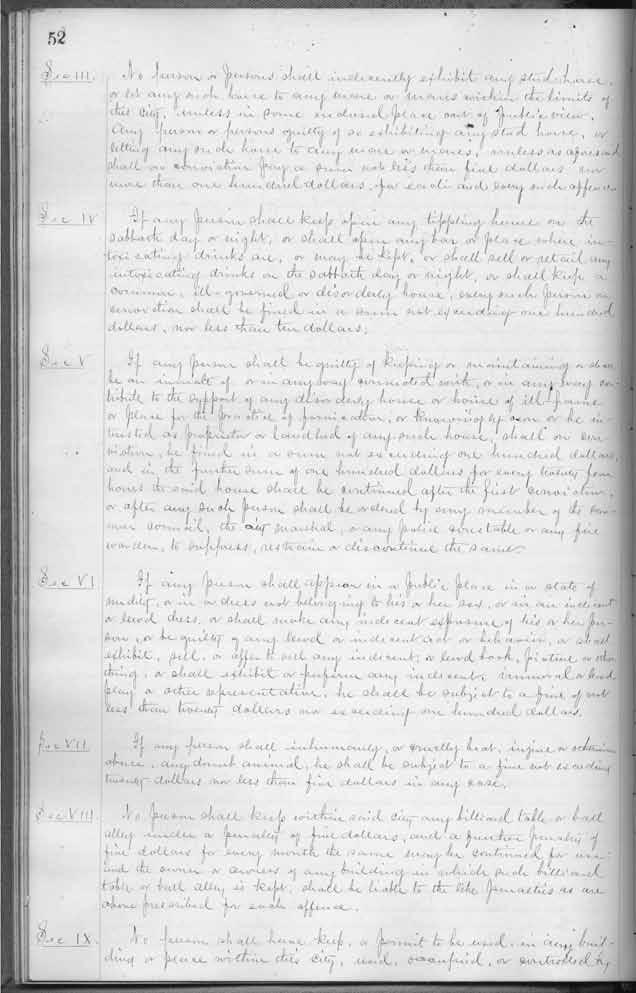 52
Sec III. No person or persons shall indecently exhibit any stud horse,
or let any such horse to any mare or mares within the limits of
this city, unless in some inclosed place out of public view.
Any person or persons guilty of so exhibiting any stud horse, or
letting any such horse to any mare or mares, unless as aforesaid
shall on conviction pay a sum not less than five dollars nor
more than one hundred dollars for each and every such offence
Sec IV If any person shall keep open any tippling house on the
sabbath day or night, or shall open any bar or place where in-
toxicating drinks are, or may be kept, or shall sell or retail any
intoxicating drinks on the sabbath day or night, or shall keep a
common, ill-governed or disorderly house, every such person on
conviction shall be fined in a sum not exceeding one hundred
dollars, nor less than ten dollars.
Sec V If any person shall be guilty of keeping or maintaining or shall
be an inmate of, or in any way connected with, or in any way con-
tribute to the support of any disorderly house or house of ill-fame
or place for the practice of fornication, or knowingly own or be in-
terested as proprietor or landlord of any such house, shall on con-
viction, be fined in a sum not exceeding one hundred dollars,
and in the further sum of one hundred dollars for every twenty four
hours the said house shall be continued after the first conviction,
or after any such person shall be ordered by any member of the com-
mon council, the city marshal, or any police constable or any fire
warden, to suppress, restrain or discontinue the same.
Sec VI If any person shall appear in a public place in a state of
nudity, or in a dress not belonging to his or her sex, or in an indecent
or lewd dress, or shall make any indecent exposure of his or her per-
son, or be guilty of any lewd or indecent act or behavior, or shall
exhibit, sell, or offer to sell any indecent, or lewd book, picture or other
thing, or shall exhibit or perform any indecent, immoral or lewd
play or other representation, he shall be subject to a fine of not
less than twenty dollars nor exceeding one hundred dollars.
Sec VII If any person shall inhumanely, or cruelly beat, injure or otherwise
abuse, any dumb animal, he shall be subject to a fine not exceeding
twenty dollars nor less than five dollars in any case.
Sec VIII No person shall keep within said city any billiard table or ball
alley under a penalty of five dollars, and a further penalty of
five dollars for every month the same may be continued for use
and the owner or owners of any building in which such billiard
table or ball alley is kept, shall be liable to the like penalties as are
above prescribed for such offence.
Sec IX. No person shall have, keep, or permit to be used, in any buil-
ding or place within this city, used, occupied, or controlled by